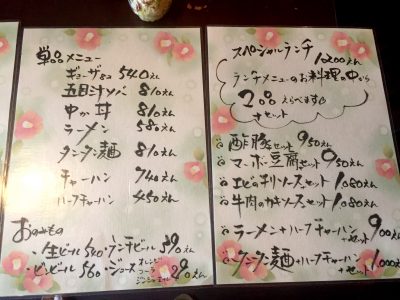 単品メニュー
ギョーザ 540えん
五目汁ソバ 810えん
中か丼 810えん
ラーメン 580えん
タンタン麺 810えん
チャーハン 740えん
ハーフチャーハン 450えん
おのみもの
・生ビール 540 ・ランチビール 390えん
・ビンビール 560 ・ジュース オレンジ コーラ ジンジャエール 290えん
スペシャルランチ 1200えん
ランチメニューのお料理の中から
2品えらべます
+セット
酢豚セット 950えん
マーボー豆腐セット 950えん
エビのチリソースセット 1080えん
牛肉のカキソースセット 1080えん
ラーメン+ハーフチャーハン+セット 900えん
タンタン麺+ハーフチャーハン+セット 1000えん